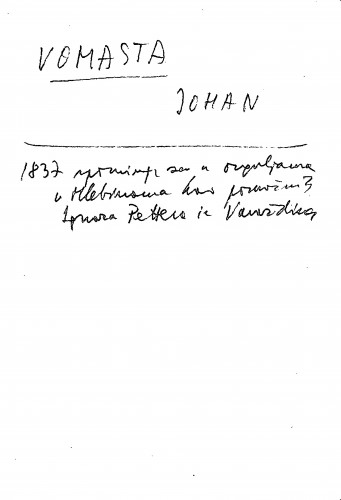 VOMASTA
JOHAN
1837 spominje se u orguljama
u Hlebinama kao pomoćnik
Ignaza Pettera iz Varaždina